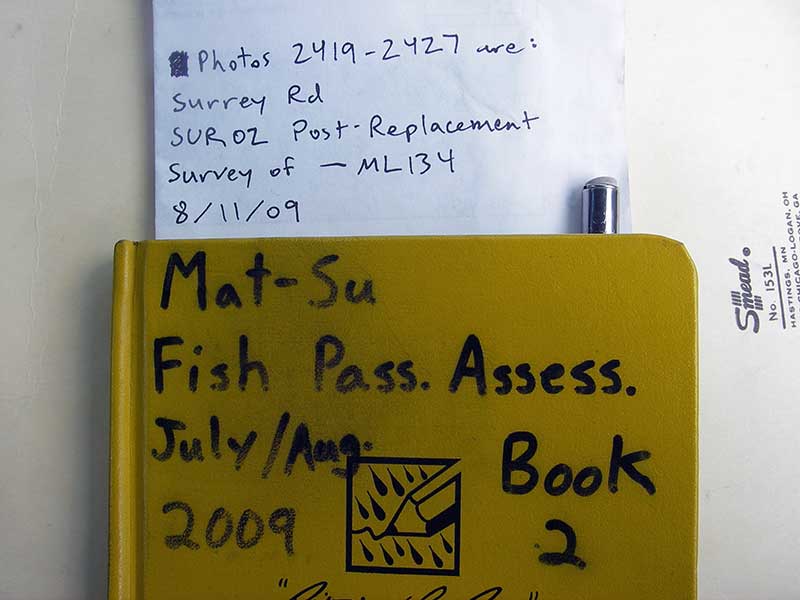 Photos 2419-2427 are:
Surrey Rd
SUR02 Post-Replacement
Survey of — ML134
8/11/09
Mat-Su
Fish Pass. Assess.
July/Aug.
2009
Book
2
Smead
No. 153L
HASTINGS, MN
CHICAGO-LOGAN, OH